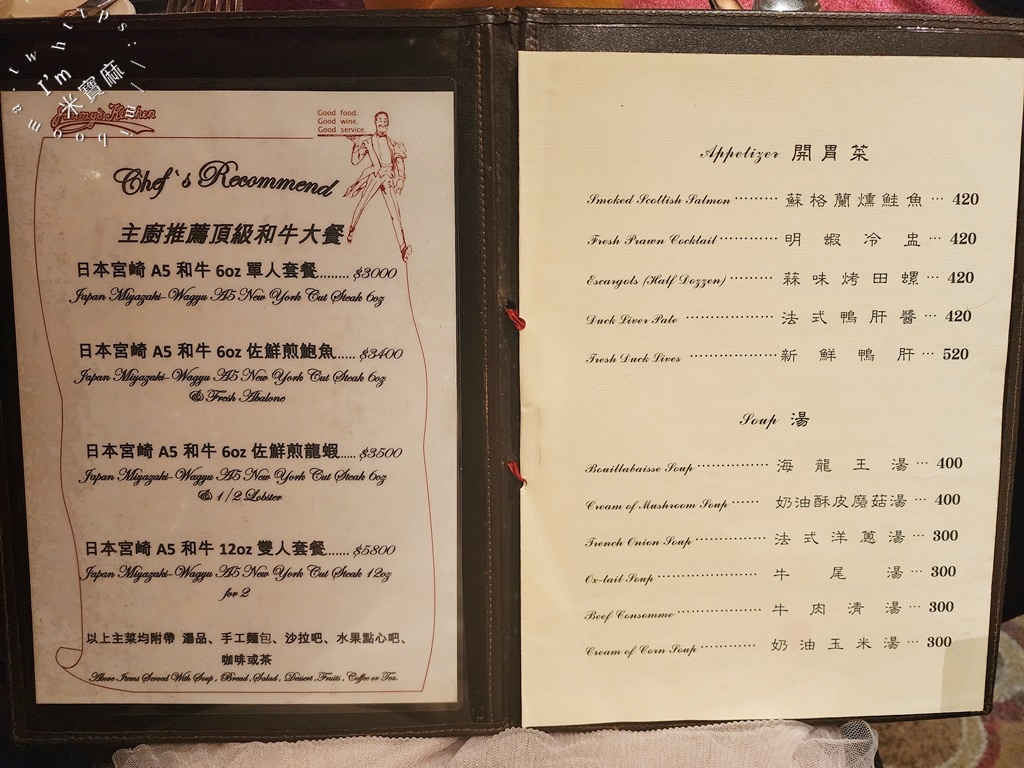 I'm
米寶麻
Jimmy's Kitchen
Good food.
Good wine.
Good service.
Chef`s Recommend
主廚推薦頂級和牛大餐
日本宮崎 A5 和牛 6oz 單人套餐......... $3000
Japan Miyazaki-Wagyu A5 New York Cut Steak 6oz
日本宮崎 A5 和牛 6oz 佐鮮煎鮑魚...... $3400
Japan Miyazaki-Wagyu A5 New York Cut Steak 6oz
& Fresh Abalone
日本宮崎 A5 和牛 6oz 佐鮮煎龍蝦..... $3500
Japan Miyazaki-Wagyu A5 New York Cut Steak 6oz
& 1/2 Lobster
日本宮崎 A5 和牛 12oz 雙人套餐....... $5800
Japan Miyazaki-Wagyu A5 New York Cut Steak 12oz
for 2
以上主菜均附帶 湯品、手工麵包、沙拉吧、水果點心吧、
咖啡或茶
Above Items Served With Soup , Bread ,Salad , Dessert ,Fruits , Coffee or Tea.
Appetizer 開胃菜
Smoked Scottish Salmon ········· 蘇格蘭燻鮭魚 ··· 420
Fresh Prawn Cocktail ············ 明蝦冷盅 ··· 420
Escargots (Half Dozzen) ··········· 蒜味烤田螺 ··· 420
Duck Liver Pate ·················· 法式鴨肝醬 ··· 420
Fresh Duck Lives ·················· 新鮮鴨肝 ··· 520
Soup 湯
Bouillabaisse Soup ··············· 海龍王湯 ··· 400
Cream of Mushroom Soup ······ 奶油酥皮磨菇湯 ··· 400
Trench Onion Soup ·············· 法式洋蔥湯 ··· 300
Ox-tail Soup ····················· 牛尾湯 ··· 300
Beef Consomme ·················· 牛肉清湯 ··· 300
Cream of Corn Soup ············· 奶油玉米湯 ··· 300